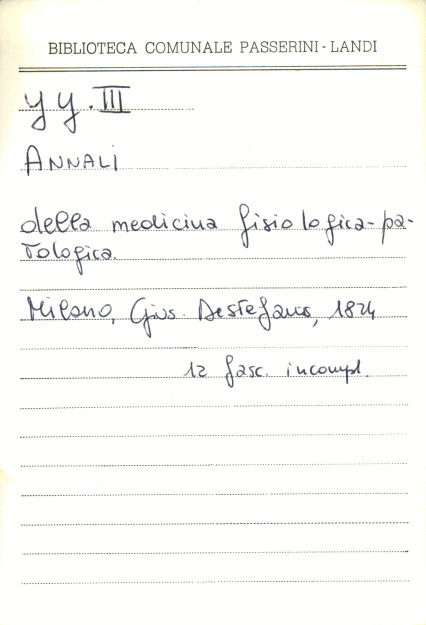 BIBLIOTECA COMUNALE PASSERINI - LANDI
yy. III
ANNALI
della medicina fisiologica-pa-
tologica.
Milano, Gius. Destefanis, 1824
12 fasc. incompl.